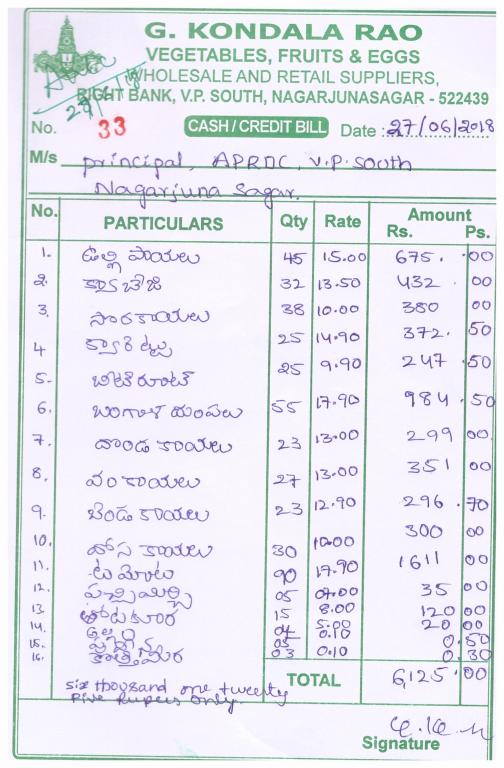 G. KONDALA RAO
VEGETABLES, FRUITS & EGGS
WHOLESALE AND RETAIL SUPPLIERS,
RIGHT BANK, V.P. SOUTH, NAGARJUNASAGAR - 522439
No. 33 CASH / CREDIT BILL Date : 27/06/2018
M/s principal, APRDC, V.P. South
Nagarjuna Sagar.
No. PARTICULARS Qty Rate Amount
Rs. Ps.
1. ఉల్లి పాయలు 45 15.00 675. 00
2. క్యాబేజి 32 13.50 432 00
3. సొరకాయలు 38 10.00 380 00
4 క్యారెట్సు 25 14.90 372. 50
5. బీట్‌రూట్ 25 9.90 247 50
6. బంగాళ దుంపలు 55 17.90 984 50
7. దొండ కాయలు 23 13.00 299 00
8. వంకాయలు 27 13.00 351 00
9. బెండ కాయలు 23 12.90 296 70
10. దోస కాయలు 30 10.00 300 00
11. టమోటు 90 17.90 1611 00
12. పచ్చిమిర్చి 05 07.00 35 00
13 తోటకూర 15 8.00 120 00
14. అల్లం 04 5.00 20 00
15. 05 0.10 0.50
16. కొత్తిమీర 03 0.10 0.30
TOTAL 6,125 .00
six thousand one twenty
Five Rupees only.
Signature